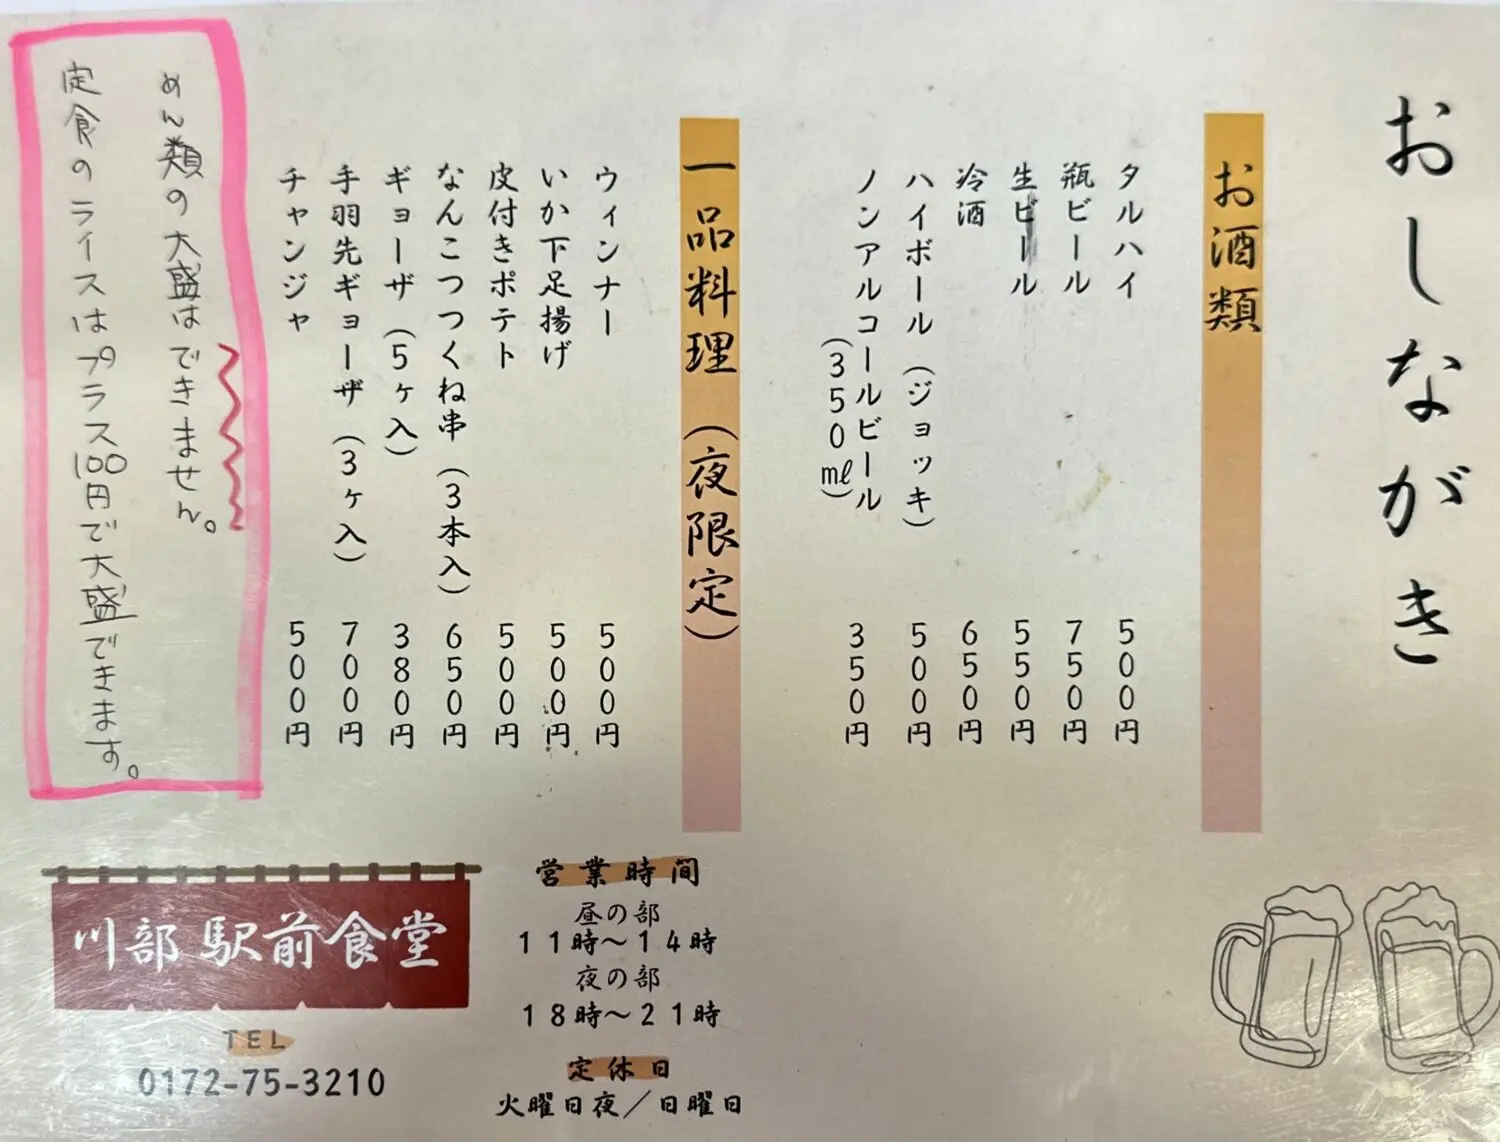 おしながき
お酒類
タルハイ 500円
瓶ビール 750円
生ビール 550円
冷酒 650円
ハイボール（ジョッキ） 500円
ノンアルコールビール 350円
（350㎖）
一品料理（夜限定）
ウィンナー 500円
いか下足揚げ 500円
皮付きポテト 500円
なんこつつくね串（3本入） 650円
ギョーザ（5ヶ入） 380円
手羽先ギョーザ（3ヶ入） 700円
チャンジャ 500円
めん類の大盛はできません。
定食のライスはプラス100円で大盛できます。
川部 駅前食堂
TEL
0172-75-3210
営業時間
昼の部
11時～14時
夜の部
18時～21時
定休日
火曜日夜／日曜日